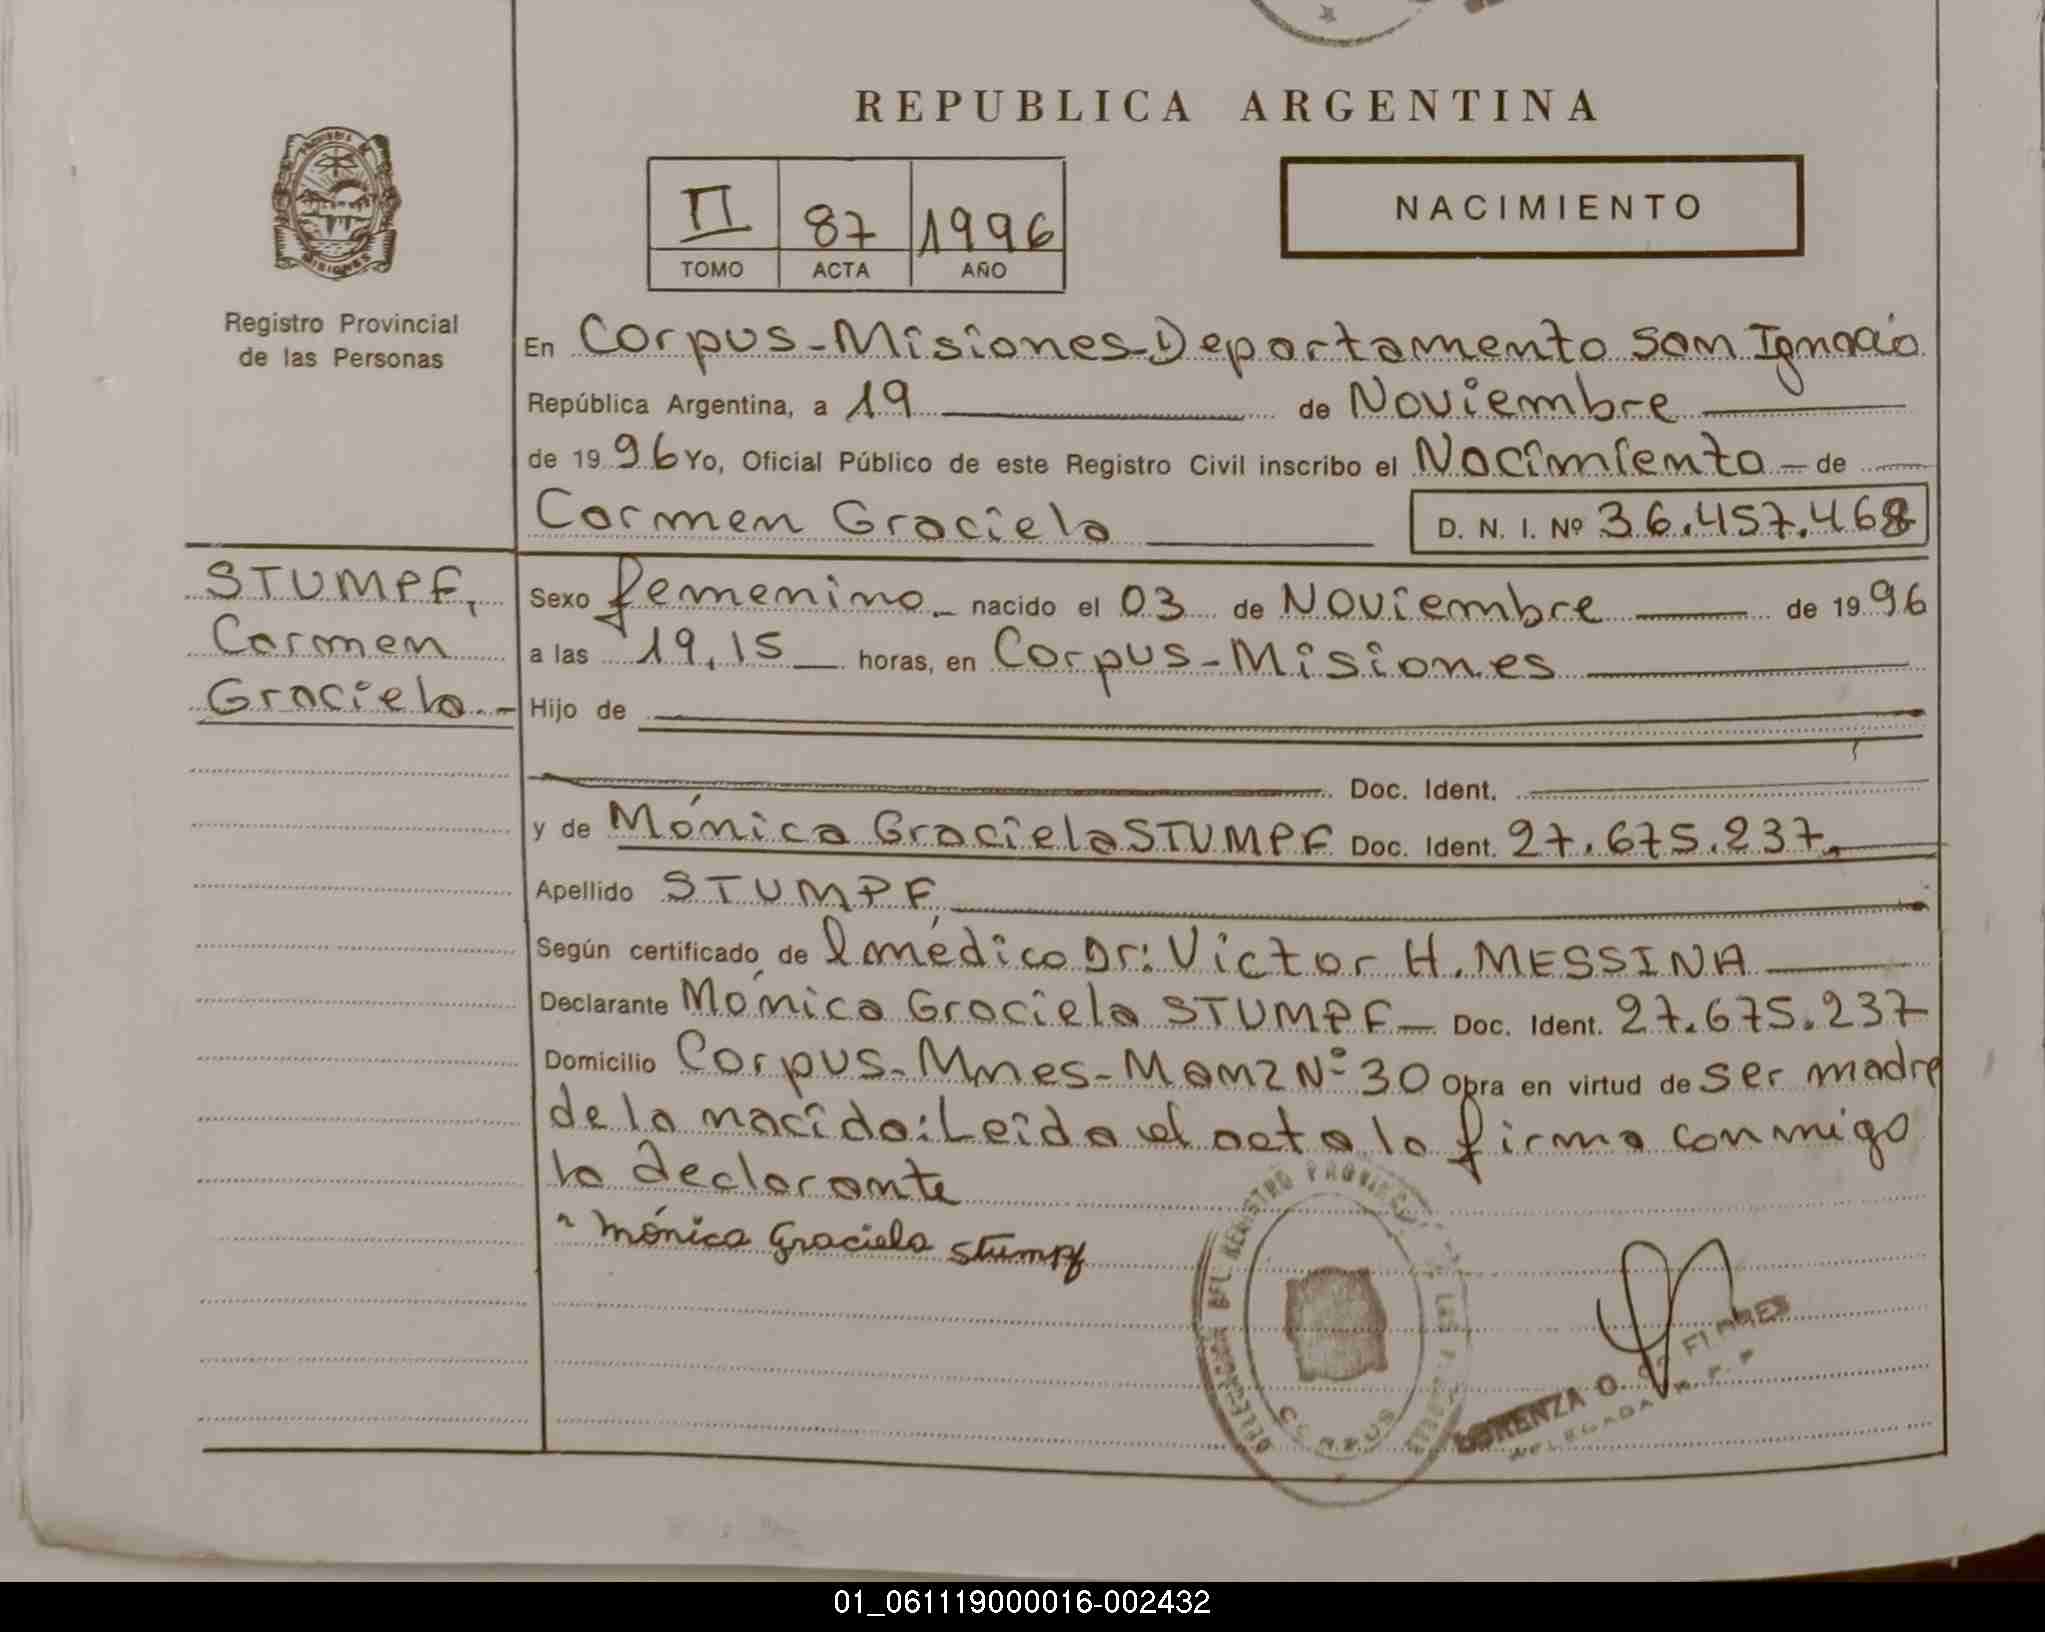 REPUBLICA ARGENTINA
PROVINCIA DE
MISIONES
II 87 1996
TOMO ACTA AÑO
NACIMIENTO
Registro Provincial
de las Personas
En Corpus-Misiones-Departamento San Ignacio
República Argentina, a 19 de Noviembre
de 19 96 Yo, Oficial Público de este Registro Civil inscribo el Nacimiento - de
Carmen Graciela D. N. I. Nº 36.457.468
STUMPF,
Carmen
Graciela.-
Sexo femenino.- nacido el 03 de Noviembre de 19 96
a las 19,15 horas, en Corpus-Misiones
Hijo de
Doc. Ident.
y de Mónica Graciela STUMPF Doc. Ident. 27.675.237.
Apellido STUMPF,
Según certificado de l médico Dr: Victor H. MESSINA
Declarante Mónica Graciela STUMPF - Doc. Ident. 27.675.237
Domicilio Corpus-Mnes-Manz Nº 30 Obra en virtud de ser madre
de la nacida: Leida el acta la firma conmigo
la declarante
Mónica Graciela Stumpf
DELEGACION DEL REGISTRO PROVINCIAL DE LAS PERSONAS
CORPUS
LORENZA O. DE
DELEGADA R. P. P.
01_061119000016-002432